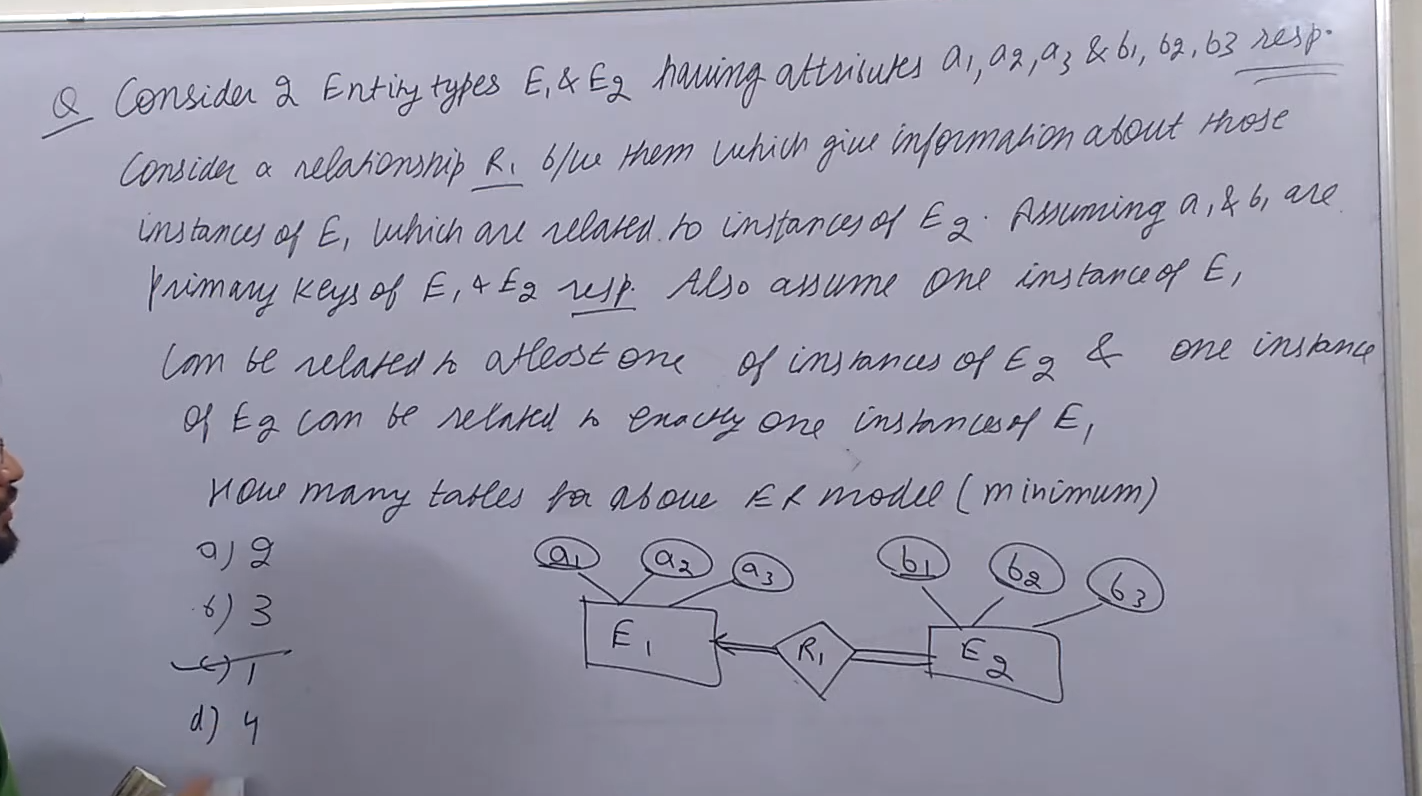 Q Consider 2 Entity types E1 & E2 having attributes a1, a2, a3 & b1, b2, b3 resp.
Consider a relationship R1 b/w them which give information about those
instances of E1 which are related to instances of E2. Assuming a1 & b1 are
Primary Keys of E1 & E2 resp. Also assume one instance of E1
can be related to atleast one of instances of E2 & one instance
of E2 can be related to exactly one instances of E1
How many tables for above ER model (minimum)
a) 2
b) 3
c) 1
d) 4
a1 a2 a3 b1 b2 b3
E1 R1 E2